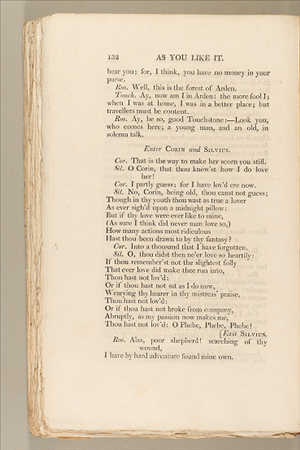 132 AS YOU LIKE IT.
bear you; for, I think, you have no money in your
purse.
Ros. Well, this is the forest of Arden.
Touch. Ay, now am I in Arden: the more fool I;
when I was at home, I was in a better place; but
travellers must be content.
Ros. Ay, be so, good Touchstone:—Look you,
who comes here; a young man, and an old, in
solemn talk.
Enter CORIN and SILVIUS.
Cor. That is the way to make her scorn you still.
Sil. O Corin, that thou knew'st how I do love
her!
Cor. I partly guess; for I have lov'd ere now.
Sil. No, Corin, being old, thou canst not guess;
Though in thy youth thou wast as true a lover
As ever sigh'd upon a midnight pillow:
But if thy love were ever like to mine,
(As sure I think did never man love so,)
How many actions most ridiculous
Hast thou been drawn to by thy fantasy?
Cor. Into a thousand that I have forgotten.
Sil. O, thou didst then ne'er love so heartily:
If thou remember'st not the slightest folly
That ever love did make thee run into,
Thou hast not lov'd:
Or if thou hast not sat as I do now,
Wearying thy hearer in thy mistress' praise,
Thou hast not lov'd:
Or if thou hast not broke from company,
Abruptly, as my passion now makes me,
Thou hast not lov'd: O Phebe, Phebe, Phebe!
[Exit SILVIUS.
Ros. Alas, poor shepherd! searching of thy
wound,
I have by hard adventure found mine own.